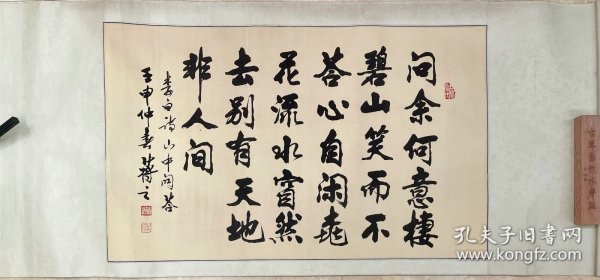 问余何意棲
碧山笑而不
答心自闲桃
花流水窅然
去别有天地
非人间
李白诗山中问答
壬申仲春
孔夫子旧书网